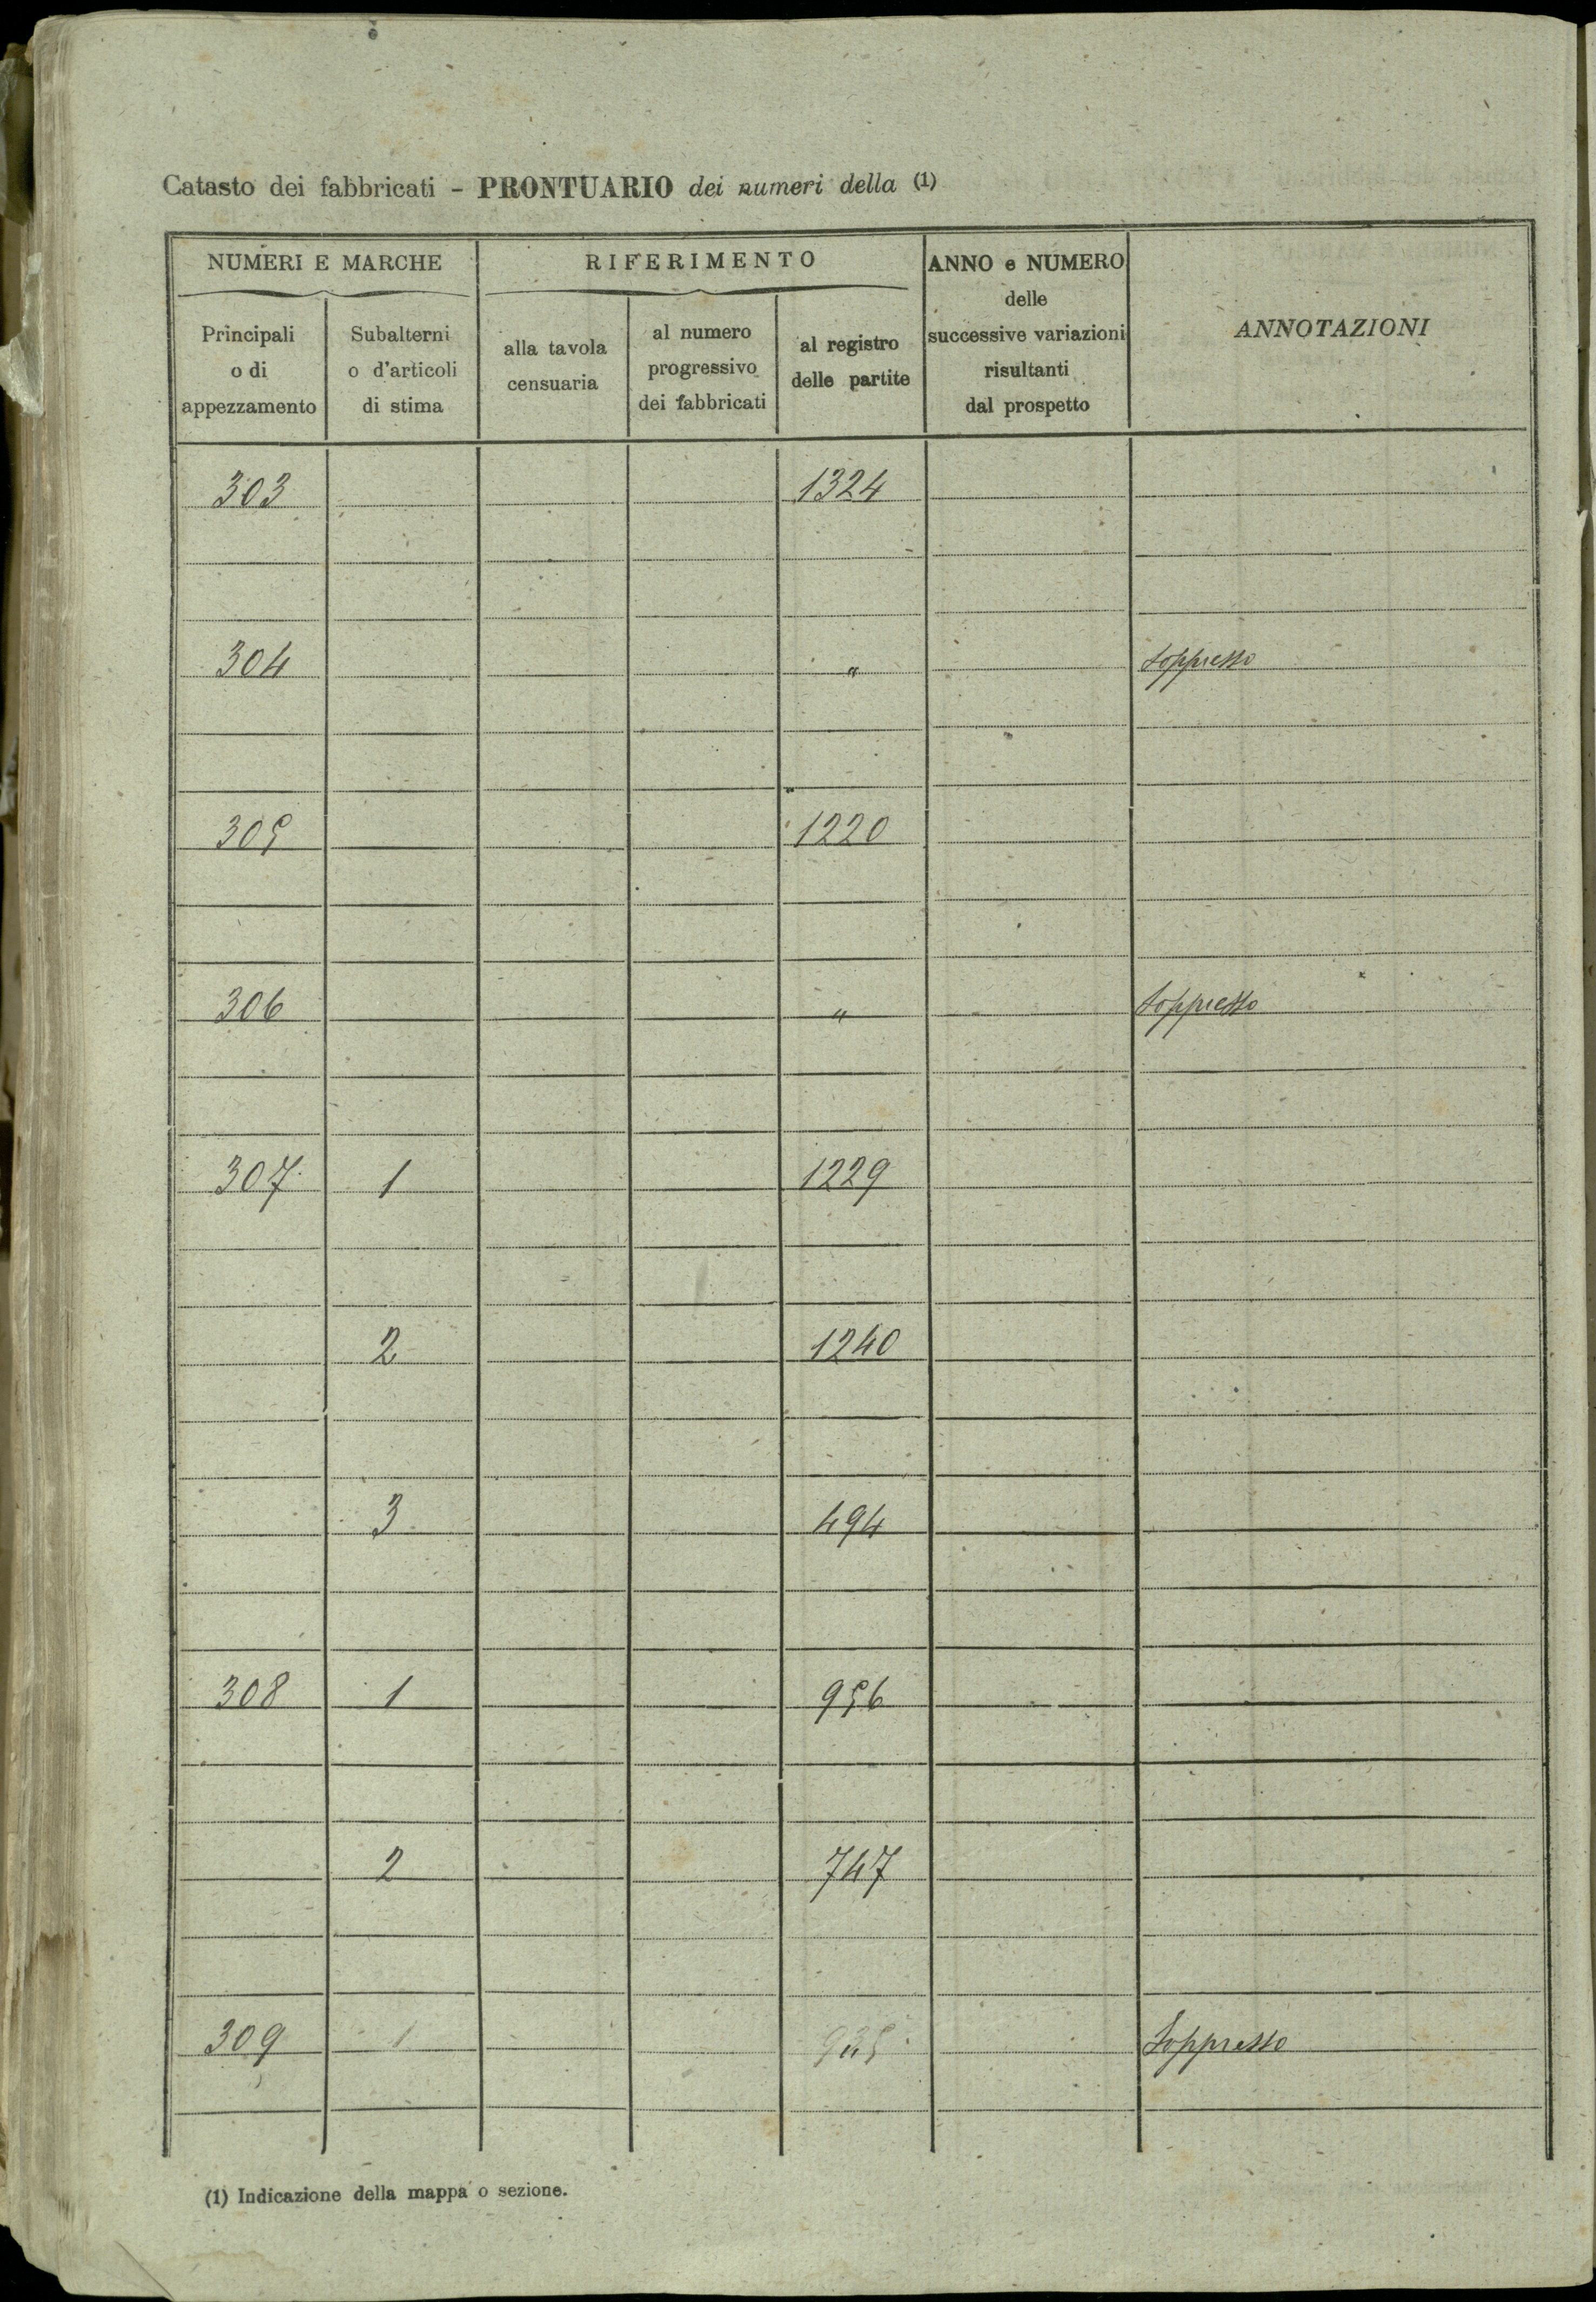 Catasto dei fabbricati - PRONTUARIO dei numeri della (1)
NUMERI E MARCHE
RIFERIMENTO
ANNO e NUMERO
delle
successive variazioni
risultanti
dal prospetto
ANNOTAZIONI
Principali
o di
appezzamento
Subalterni
o d'articoli
di stima
alla tavola
censuaria
al numero
progressivo
dei fabbricati
al registro
delle partite
303 1324
304 " Soppresso
305 1220
306 " Soppresso
307 1 1229
2 1240
3 494
308 1 956
2 747
309 1 Soppresso
(1) Indicazione della mappa o sezione.